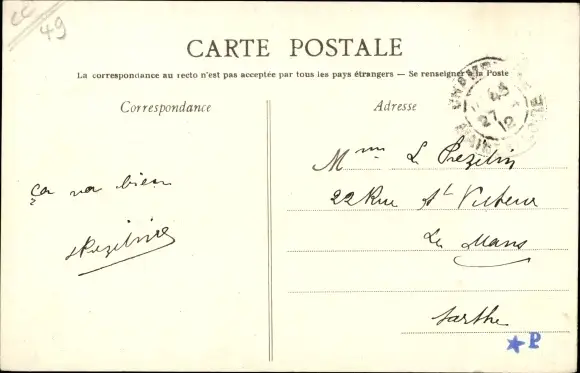 CC
49
CARTE POSTALE
La correspondance au recto n'est pas acceptée par tous les pays étrangers — Se renseigner à la Poste
Correspondance
Adresse
45
27
12
ça va bien
Mme L Prezelin
22 Rue St Victeur
Le Mans
Sarthe
P